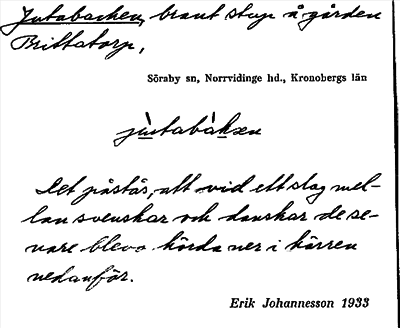 Jutabacken, brant stup å gården
Brittatorp,
Söraby sn, Norrvidinge hd., Kronobergs län
jùtabàkɛn
Det påstås, att vid ett slag mel-
lan svenskar och danskar de se-
nare blevo körda ner i kärren
nedanför.
Erik Johannesson 1933